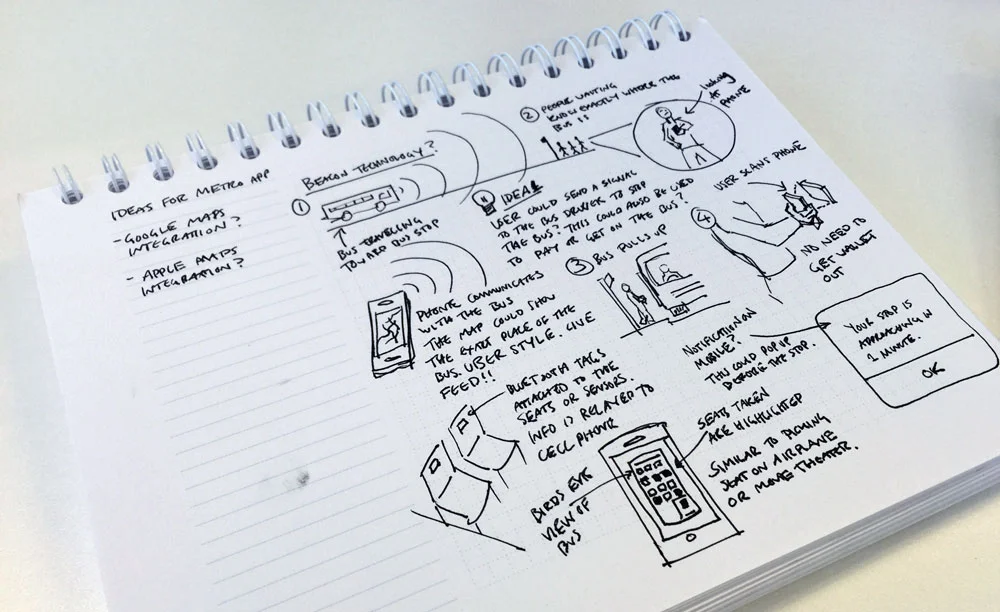 IDEAS FOR METRO APP
- GOOGLE MAPS
INTEGRATION?
- APPLE MAPS
INTEGRATION?
BEACON TECHNOLOGY?
1
BUS TRAVELING
TOWARD BUS STOP
2 PEOPLE WAITING
KNOW EXACTLY WHERE THE
BUS IS
looking
AT
PHONE
IDEA
USER COULD SEND A SIGNAL
TO THE BUS DRIVER TO STOP
THE BUS? THIS COULD ALSO BE USED
TO PAY OR GET ON THE BUS?
PHONE COMMUNICATES
WITH THE BUS
THE MAP COULD SHOW
THE EXACT PLACE OF THE
BUS. UBER STYLE. LIVE
FEED!!
3 BUS PULLS UP
USER SCANS PHONE
4
NO NEED
GET WALLET
OUT
NOTIFICATION ON
MOBILE?
THIS COULD POP UP
BEFORE THE STOP.
YOUR STOP IS
APPROACHING IN
1 MINUTE.
OK
BLUETOOTH TAGS
ATTACHED TO THE
SEATS OR SENSORS.
INFO IS RELAYED TO
CELL PHONE
BIRDS EYE
VIEW OF
BUS
SEATS TAKEN
ARE HIGHLIGHTED
SIMILAR TO PICKING
SEAT ON AIRPLANE
OR MOVIE THEATER.